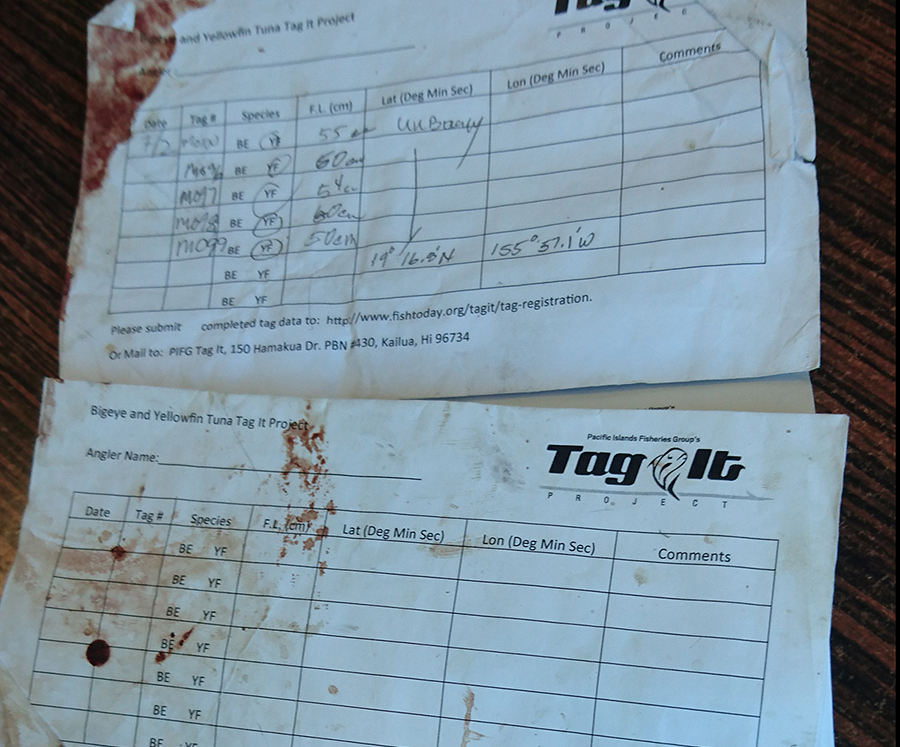 Bigeye and Yellowfin Tuna Tag It Project
Tag
P R O J E C
Date Tag # Species F.L. (cm) Lat (Deg Min Sec) Lon (Deg Min Sec) Comments
7/2 BE YF 55
BE YF 60cm
M097 BE YF 54cm
M098 BE YF 60cm
M099 BE YF 50cm
BE YF 19° 16.5'N 155° 57.1'W
BE YF
Please submit completed tag data to: http://www.fishtoday.org/tagit/tag-registration.
Or Mail to: PIFG Tag It, 150 Hamakua Dr. PBN #430, Kailua, Hi 96734
Bigeye and Yellowfin Tuna Tag It Project
Pacific Islands Fisheries Group's
Tag It
P R O J E C T
Angler Name:
Date Tag # Species F.L. (cm) Lat (Deg Min Sec) Lon (Deg Min Sec) Comments
BE YF
BE YF
BE YF
BE YF
BE YF
BE YF
BE YF